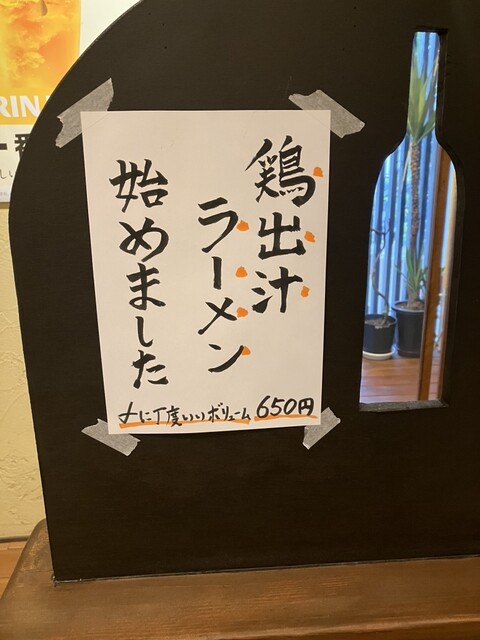 鶏出汁
ラーメン
始めました
〆に丁度いいボリューム 650円
RIN